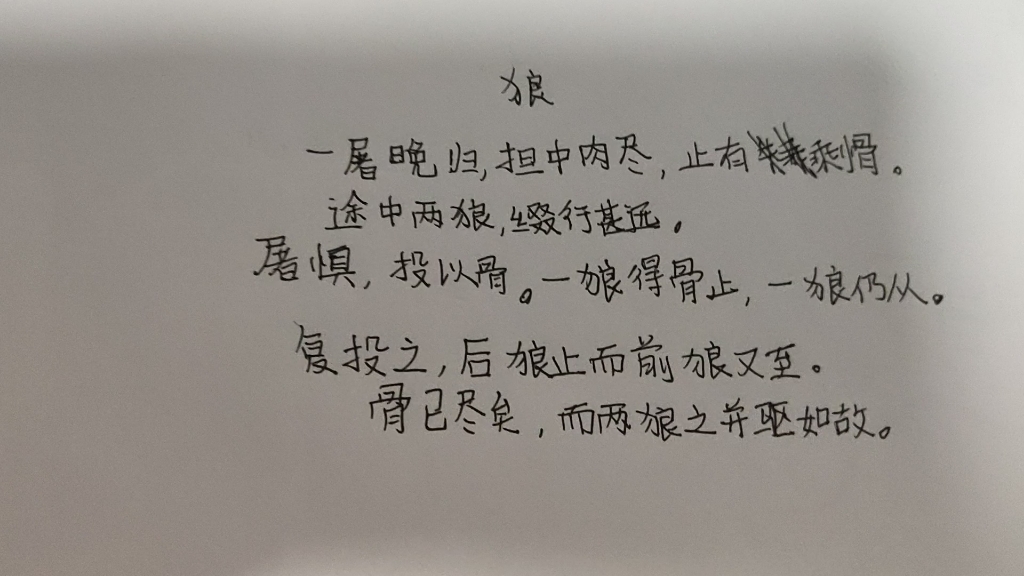 狼
一屠晚归,担中肉尽,止有剩骨。
途中两狼,缀行甚远。
屠惧,投以骨。一狼得骨止,一狼仍从。
复投之,后狼止而前狼又至。
骨已尽矣,而两狼之并驱如故。